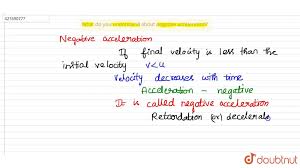 421590777
What do you understand about negative acceleration?
Negative acceleration
If final velocity is less than the
initial velocity v<u
velocity decreases with time
Acceleration - negative
It is called negative acceleration
Retardation (or) decelera
doubtnut